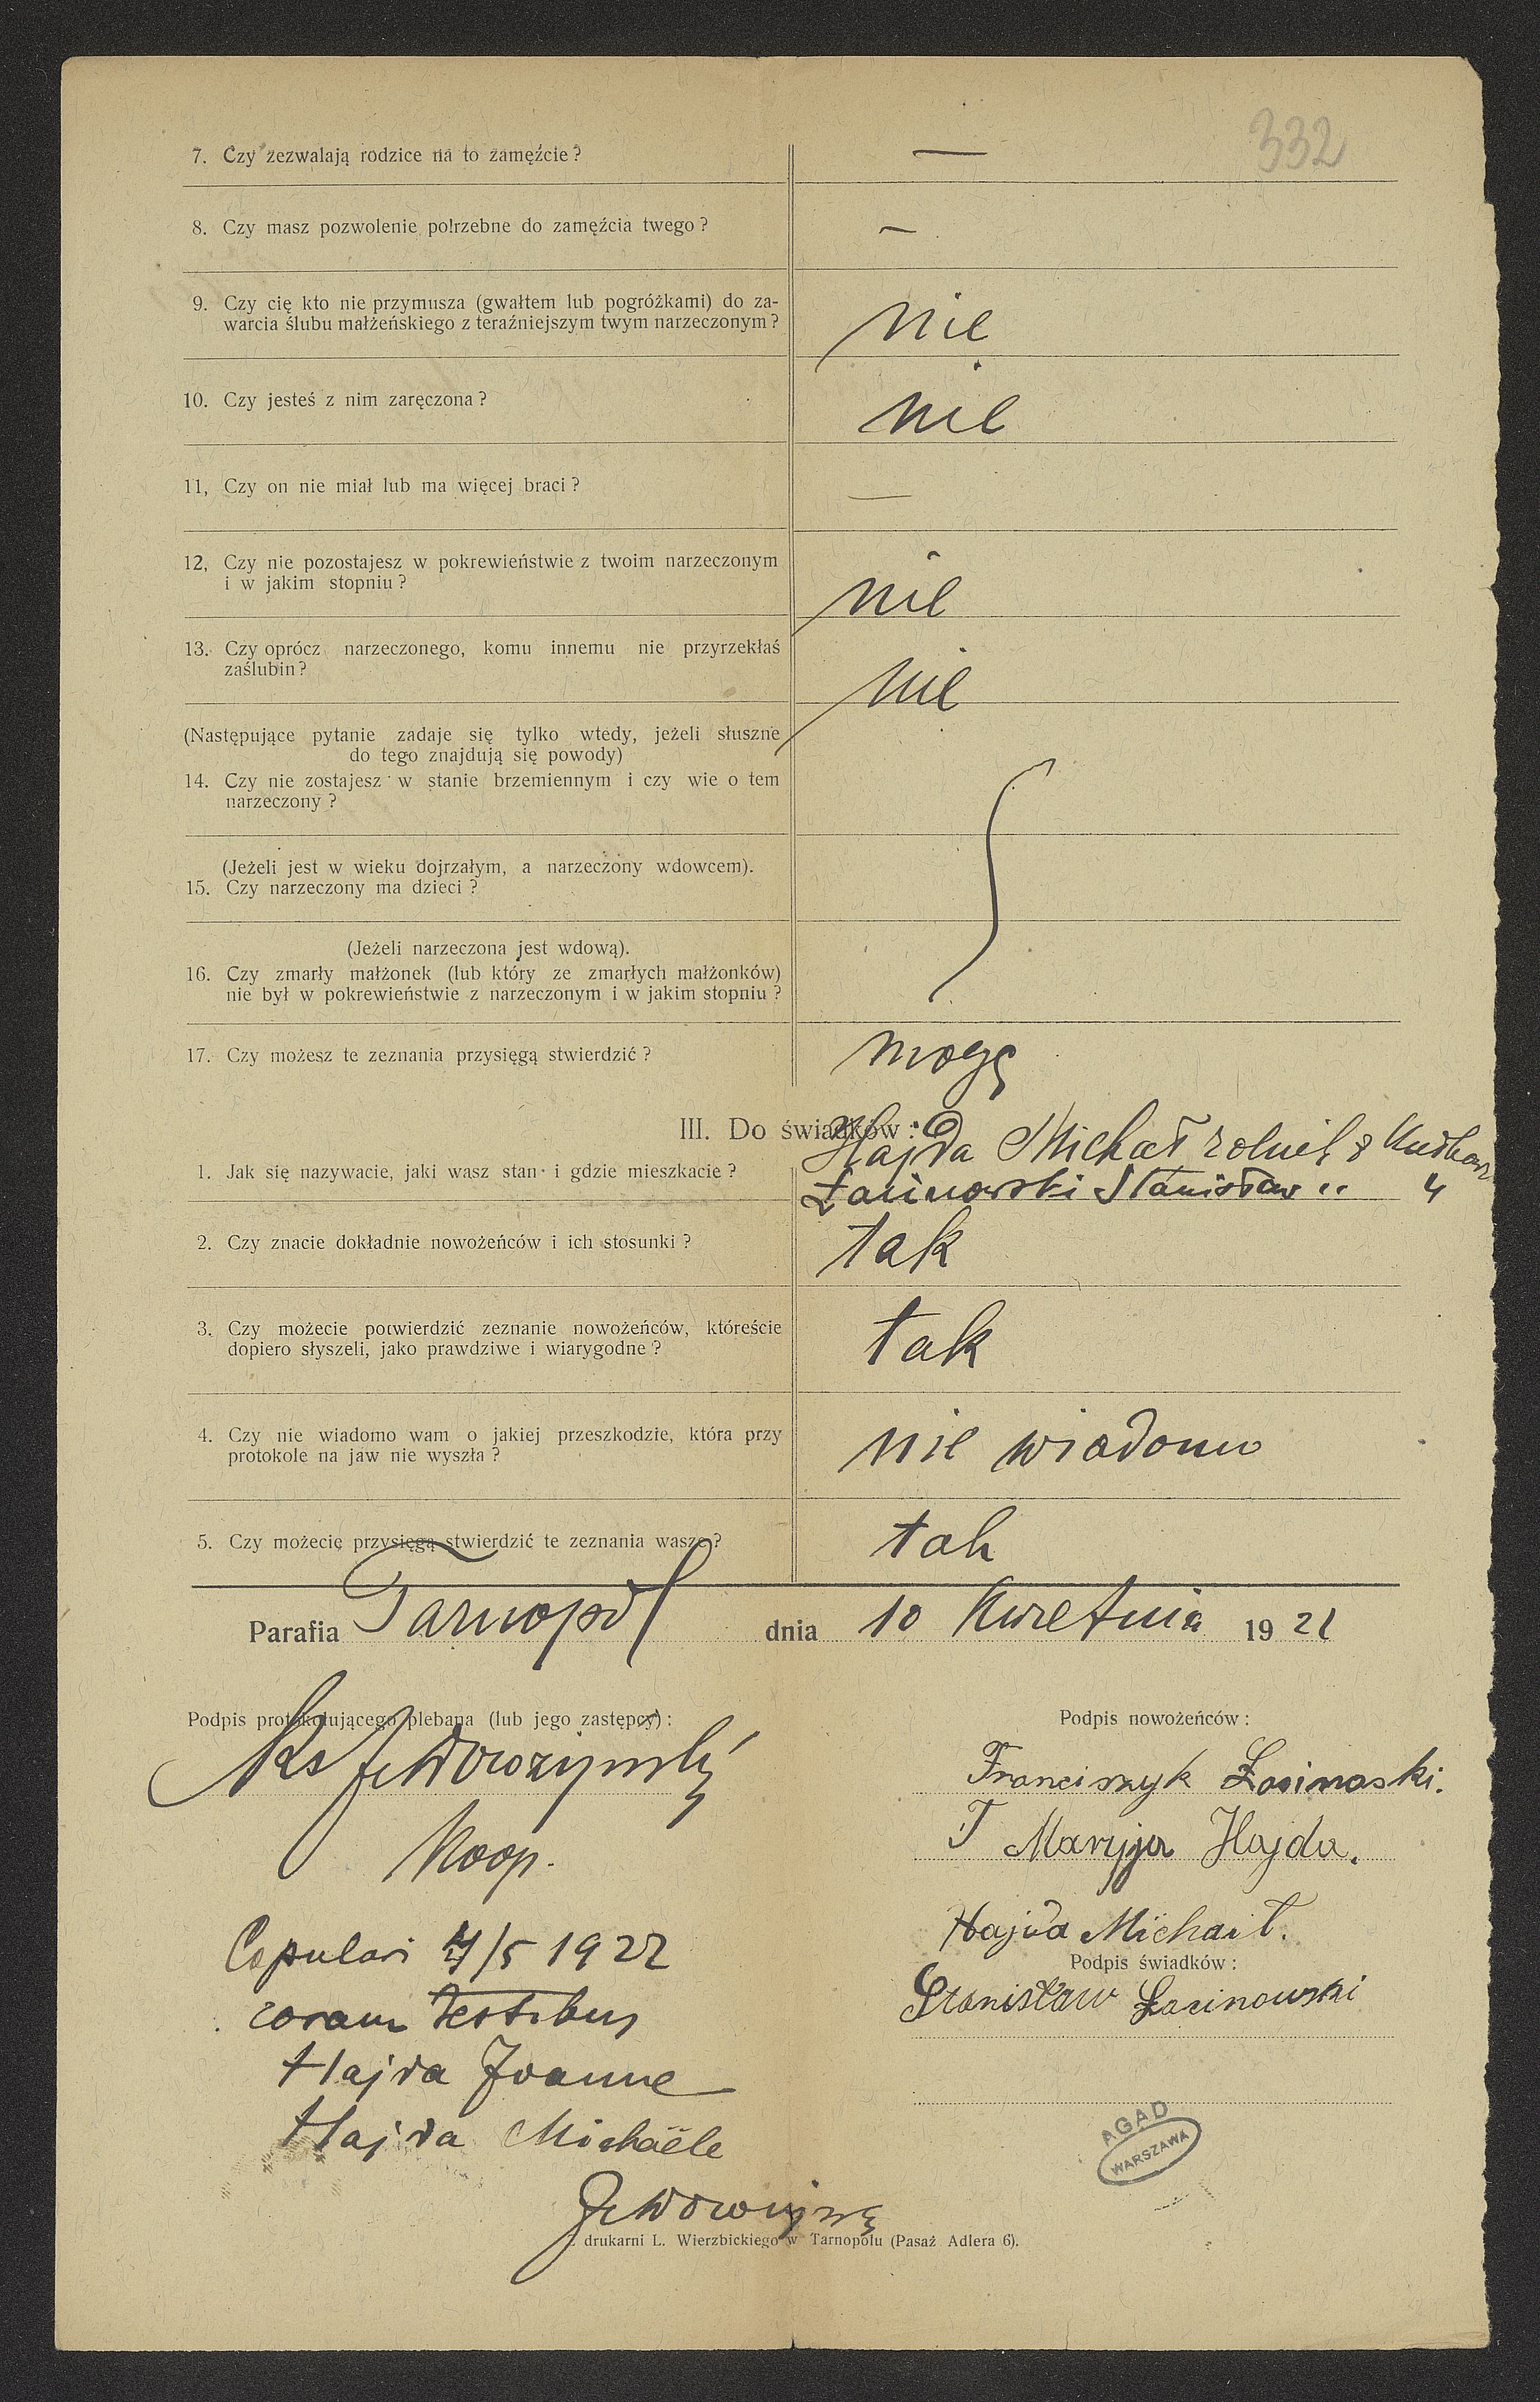 332
7. Czy zezwalają rodzice na to zamęźcie? —
8. Czy masz pozwolenie potrzebne do zamęźcia twego? –
9. Czy cię kto nie przymusza (gwałtem lub pogróżkami) do za-
warcia ślubu małżeńskiego z teraźniejszym twym narzeczonym? nie
10. Czy jesteś z nim zaręczona? nie
11, Czy on nie miał lub ma więcej braci? —
12, Czy nie pozostajesz w pokrewieństwie z twoim narzeczonym
i w jakim stopniu? nie
13. Czy oprócz narzeczonego, komu innemu nie przyrzekłaś
zaślubin? nie
(Następujące pytanie zadaje się tylko wtedy, jeżeli słuszne
do tego znajdują się powody)
14. Czy nie zostajesz w stanie brzemiennym i czy wie o tem
narzeczony?
(Jeżeli jest w wieku dojrzałym, a narzeczony wdowcem).
15. Czy narzeczony ma dzieci?
(Jeżeli narzeczona jest wdową).
16. Czy zmarły małżonek (lub który ze zmarłych małżonków)
nie był w pokrewieństwie z narzeczonym i w jakim stopniu?
17. Czy możesz te zeznania przysięgą stwierdzić? mogę
III. Do świadków:
Hajda Michał rolnik z
1. Jak się nazywacie, jaki wasz stan i gdzie mieszkacie?
Łasinowski Stanisław " "
2. Czy znacie dokładnie nowożeńców i ich stosunki? tak
3. Czy możecie potwierdzić zeznanie nowożeńców, któreście
dopiero słyszeli, jako prawdziwe i wiarygodne? tak
4. Czy nie wiadomo wam o jakiej przeszkodzie, która przy
protokole na jaw nie wyszła? nie wiadomo
5. Czy możecie przysięgą stwierdzić te zeznania wasze? tak
Parafia Tarnopol dnia 10 Kwietnia 1921
Podpis protokołującego plebana (lub jego zastępcy):
Ks
Koop.
Podpis nowożeńców:
Franciszyk Łosinoski.
T Maryja Hajda.
Hajda Michail.
Podpis świadków:
Stanisław Łasinowski
Copulavi 7/5 1922
coram testibus
Hajda Joanne
Hajda Michaële
AGAD
WARSZAWA
drukarni L. Wierzbickiego w Tarnopolu (Pasaż Adlera 6).